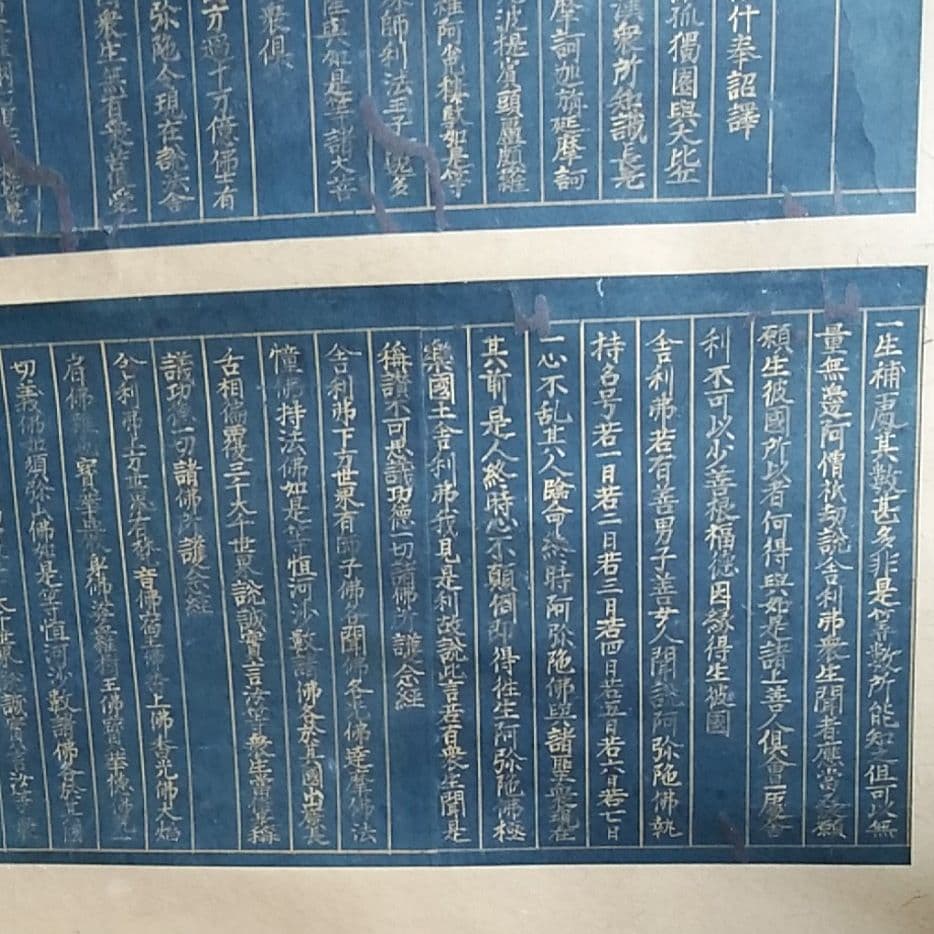 什奉詔譯
孤獨園與大比丘
漢衆所知識長老
摩訶加旃延摩訶
波提賓頭盧頗羅
阿㝹樓馱如是等
師利法王子
與如是等諸大菩
衆俱
方過十万億佛土有
弥陁今現在說法舍
衆生無有衆苦但受
一生補處其數甚多非是筭數所能知之但可以無
量無邊阿僧祇劫說舍利弗衆生聞者應當發願
願生彼國所以者何得與如是諸上善人俱會一處舍
利不可以少善根福德因緣得生彼國
舍利弗若有善男子善女人聞說阿弥陁佛執
持名号若一日若二日若三日若四日若五日若六日若七日
一心不乱其人臨命終時阿弥陁佛與諸聖衆現在
其前是人終時心不顛倒即得徃生阿弥陁佛極
樂國土舍利弗我見是利故說此言若有衆生聞是
稱讃不可思議功德一切諸佛所護念経
舍利弗下方世界有師子佛名聞佛名光佛達摩佛法
幢佛持法佛如是等恒河沙數諸佛各於其國出廣長
舌相徧覆三千大千世界說誠實言汝等衆生當信是稱
議功德一切諸佛所護念経
舍利弗上方世界有梵音佛宿王佛香上佛香光佛大焰
肩佛 寶華 身佛娑羅樹王佛寶華德佛見一
切義佛如須弥山佛如是等恒河沙數諸佛各於其國